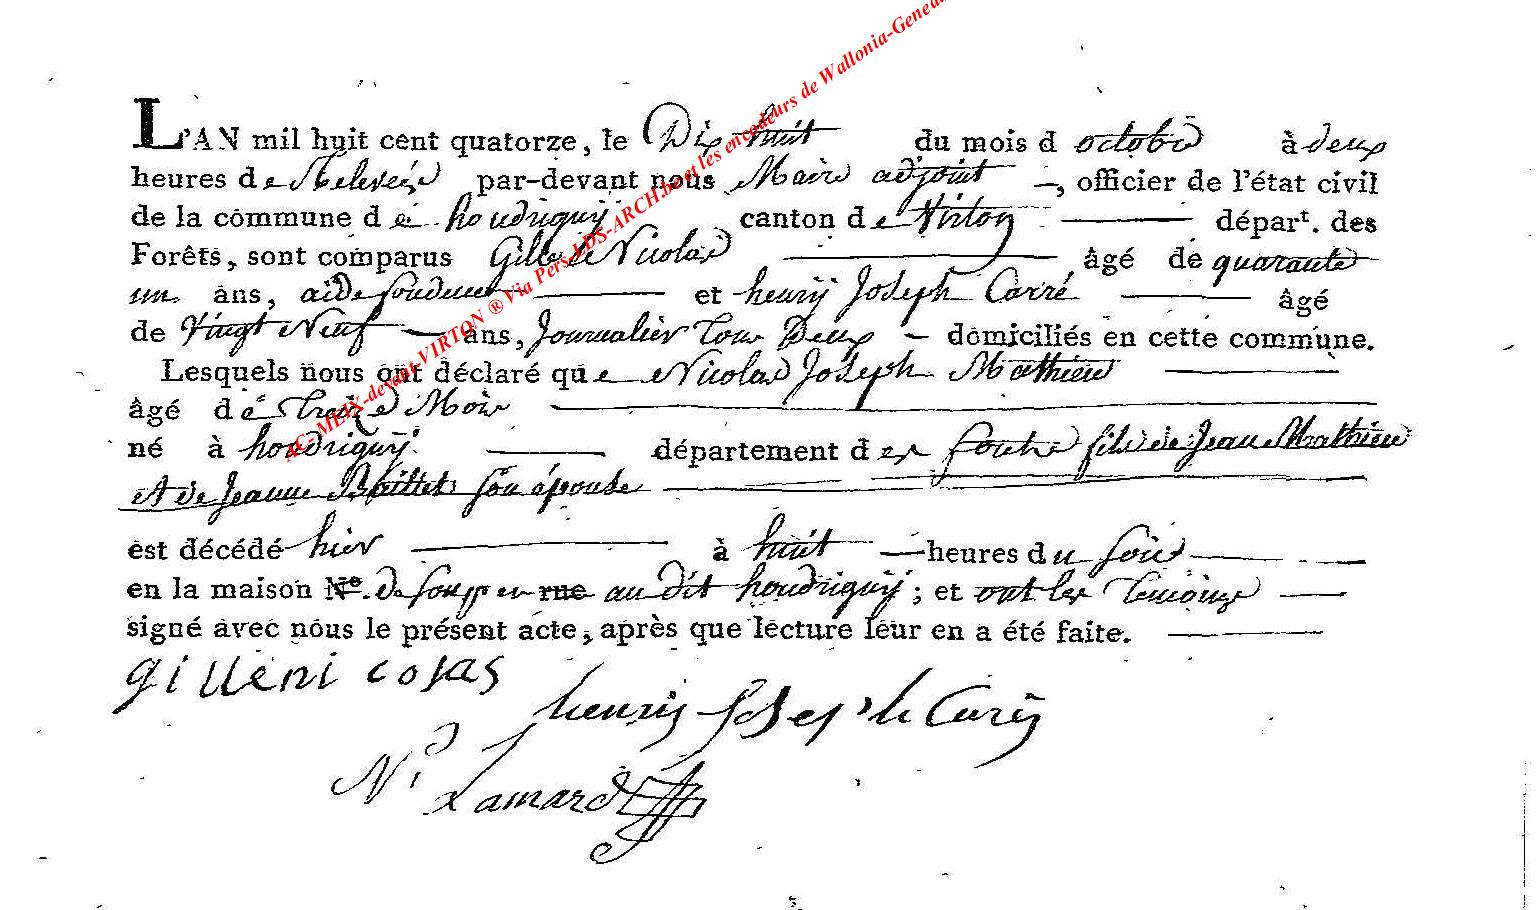 L'AN mil huit cent quatorze, le Dix huit du mois d octobre à deux
heures de Relevée par-devant nous Maire adjoint, officier de l'état civil
de la commune de houdrigny canton de Virton départ. des
Forêts, sont comparus Gille Nicolas âgé de quarante
un ans, aide et henry Joseph Carré âgé
de Vingt Neuf ans, Journalier Tous Deux domiciliés en cette commune.
Lesquels nous ont déclaré que Nicolas Joseph Mathieu
âgé de Treize Mois
né à houdrigny département des forêts fils de Jean Mathieu
et de Jeanne son épouse
est décédé hier à huit heures du soir
en la maison No. de rue au dit houdrigny; et ont les Temoins
signé avec nous le présent acte, après que lecture leur en a été faite.
gilleni colas
henrij Josep'h Caréz
N. Lamard
AC- MEIX-devant-VIRTON ® Via Pers.LDS-ARCH.be et les encodeurs de Wallonia-Genea